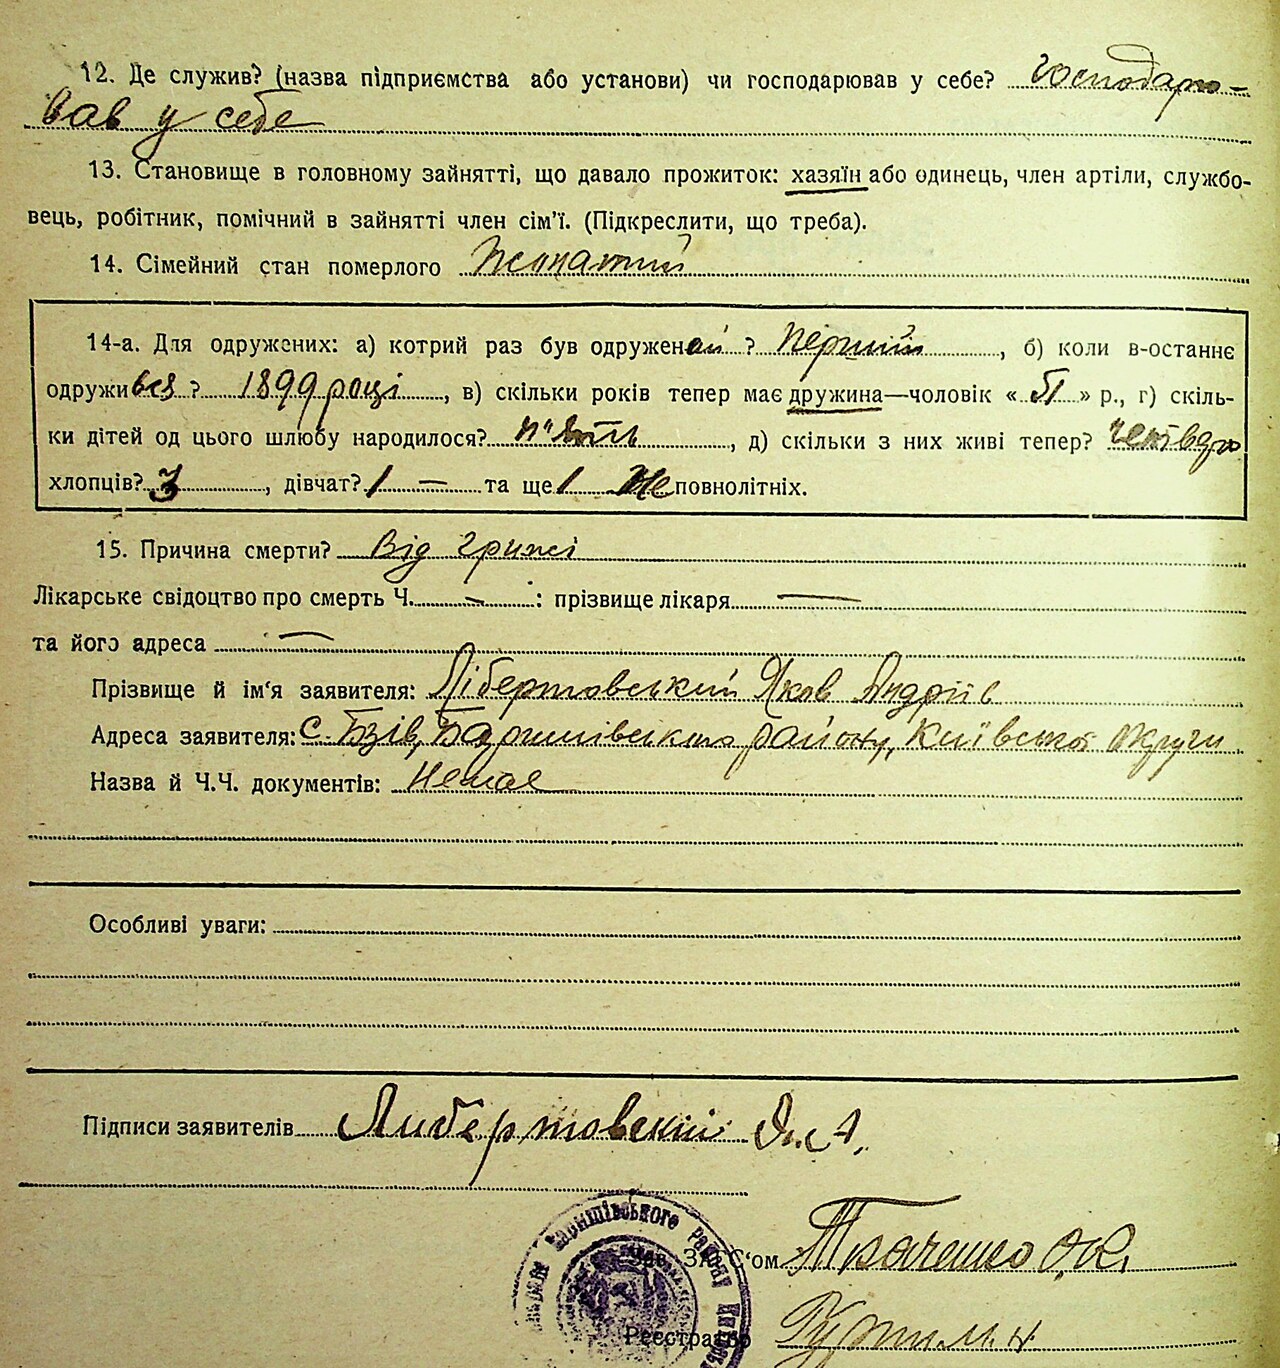 12. Де служив? (назва підприємства або установи) чи господарював у себе? господарю-
вав у себе
13. Становище в головному зайнятті, що давало прожиток: хазяїн або одинець, член артіли, службо-
вець, робітник, помічний в зайнятті член сім'ї. (Підкреслити, що треба).
14. Сімейний стан померлого Жонатий
14-а. Для одружених: а) котрий раз був одружений ? Перший, б) коли в-останнє
одружився ? 1899 році, в) скільки років тепер має дружина—чоловік « 51 » р., г) скіль-
ки дітей од цього шлюбу народилося? п'ять, д) скільки з них живі тепер? четверо
хлопців? 3, дівчат? 1 — та ще 1 неповнолітніх.
15. Причина смерти? Від грижі
Лікарське свідоцтво про смерть Ч. — : прізвище лікаря —
та його адреса —
Прізвище й ім'я заявителя: Лібертовський Яков Андріїв
Адреса заявителя: с. Бзів, Баришівського району, Київської округи
Назва й Ч.Ч. документів: Немає
Особливі уваги:
Підписи заявителів Либертовский Я. А.
Баришівського району
Зав. ЗАГС'ом Ткаченко О.К.
Реєстратор